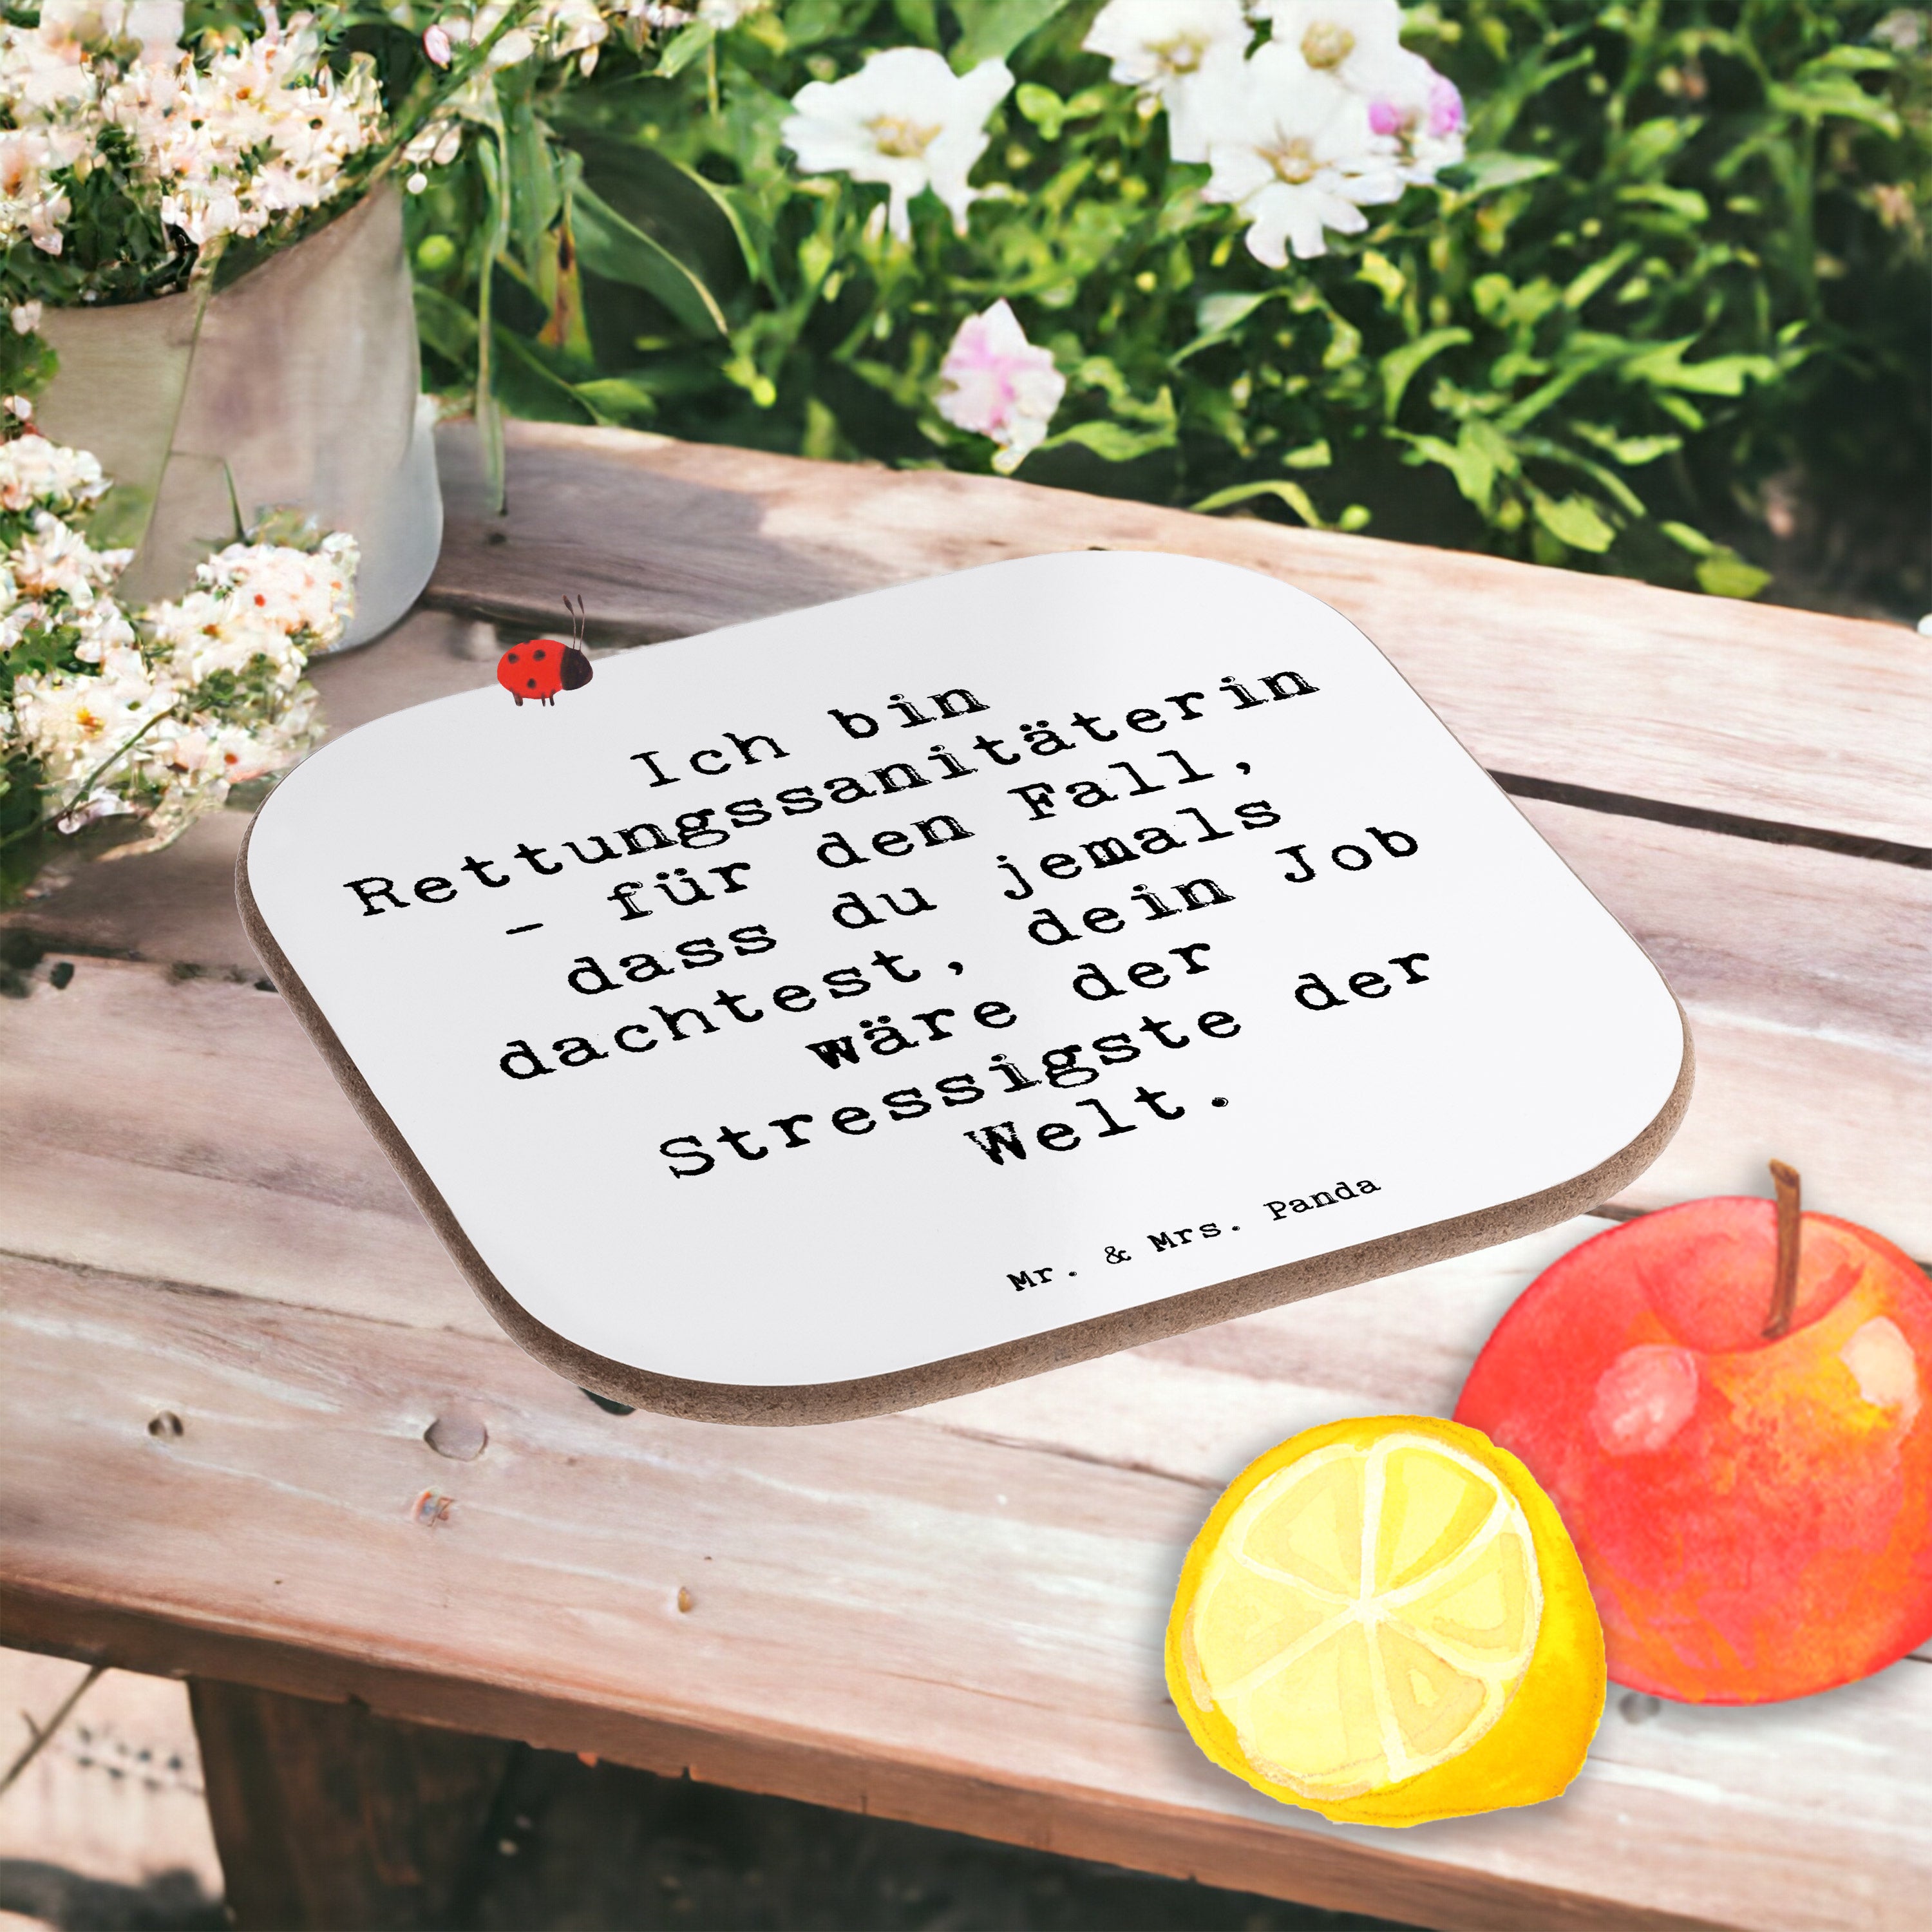 Ich bin
Rettungssanitäterin
- für den Fall,
dass du jemals
dachtest, dein Job
wäre der
Stressigste der
Welt.
Mr. & Mrs. Panda